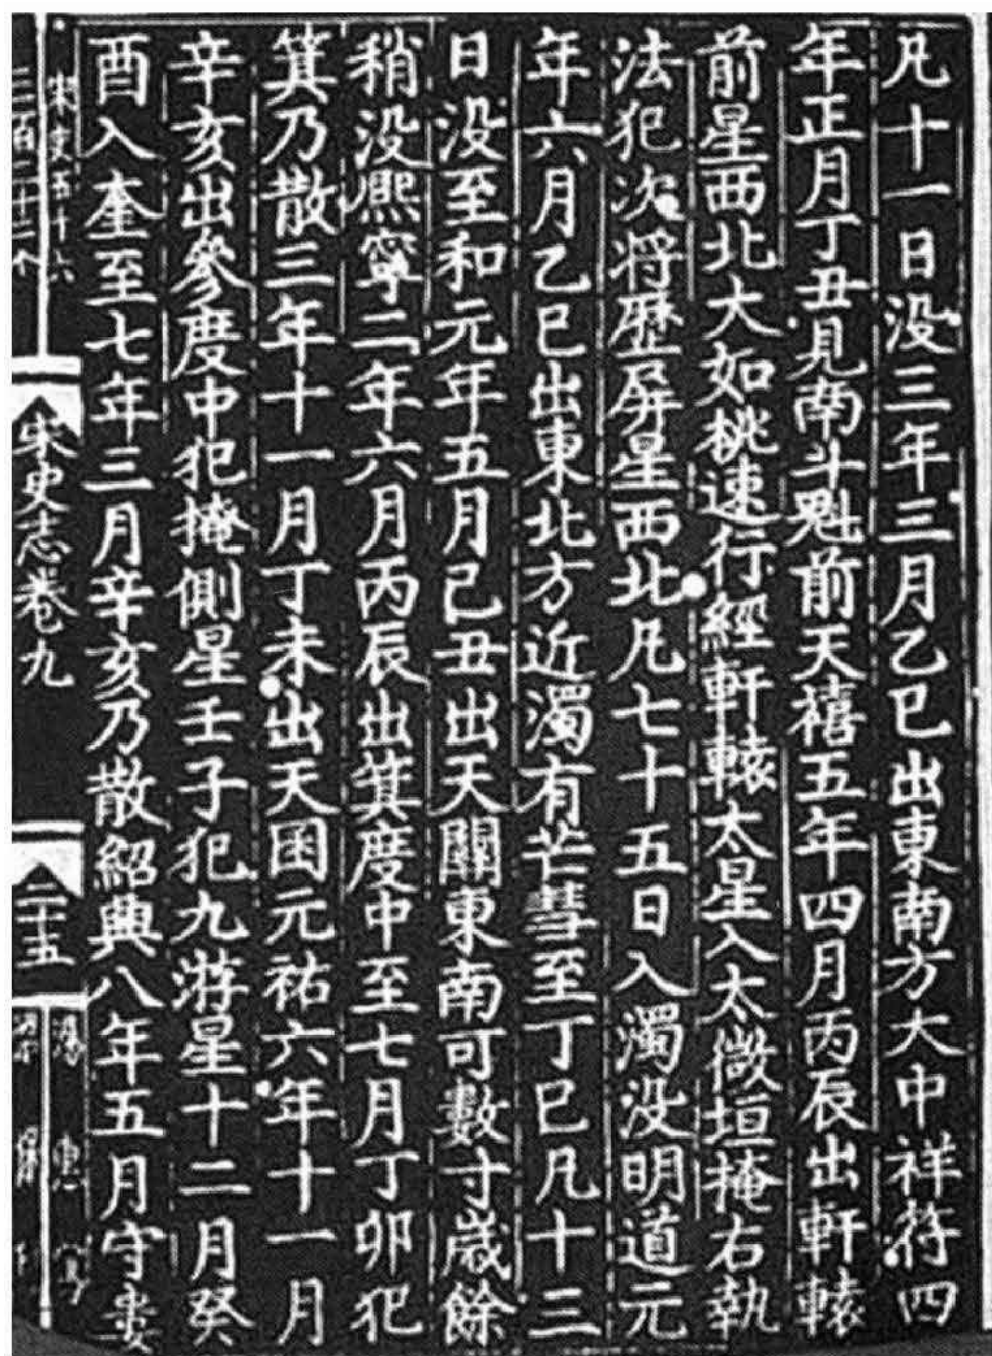 凡十一日没三年三月乙巳出東南方大中祥符四
年正月丁丑見南斗魁前天禧五年四月丙辰出軒轅
前星西北大如桃速行經軒轅太星入太微垣掩右執
法犯次將歷屏星西北凡七十五日入濁没明道元
年六月乙巳出東北方近濁有芒彗至丁巳凡十三
日没至和元年五月己丑出天關東南可數寸歲餘
稍没熈寧二年六月丙辰出箕度中至七月丁卯犯
箕乃散三年十一月丁未出天囷元祐六年十一月
辛亥出參度中犯掩側星壬子犯九斿星十二月癸
酉入奎至七年三月辛亥乃散紹興八年五月守婁
宋史五十六
三百二十二个
宋史志卷九
二十五